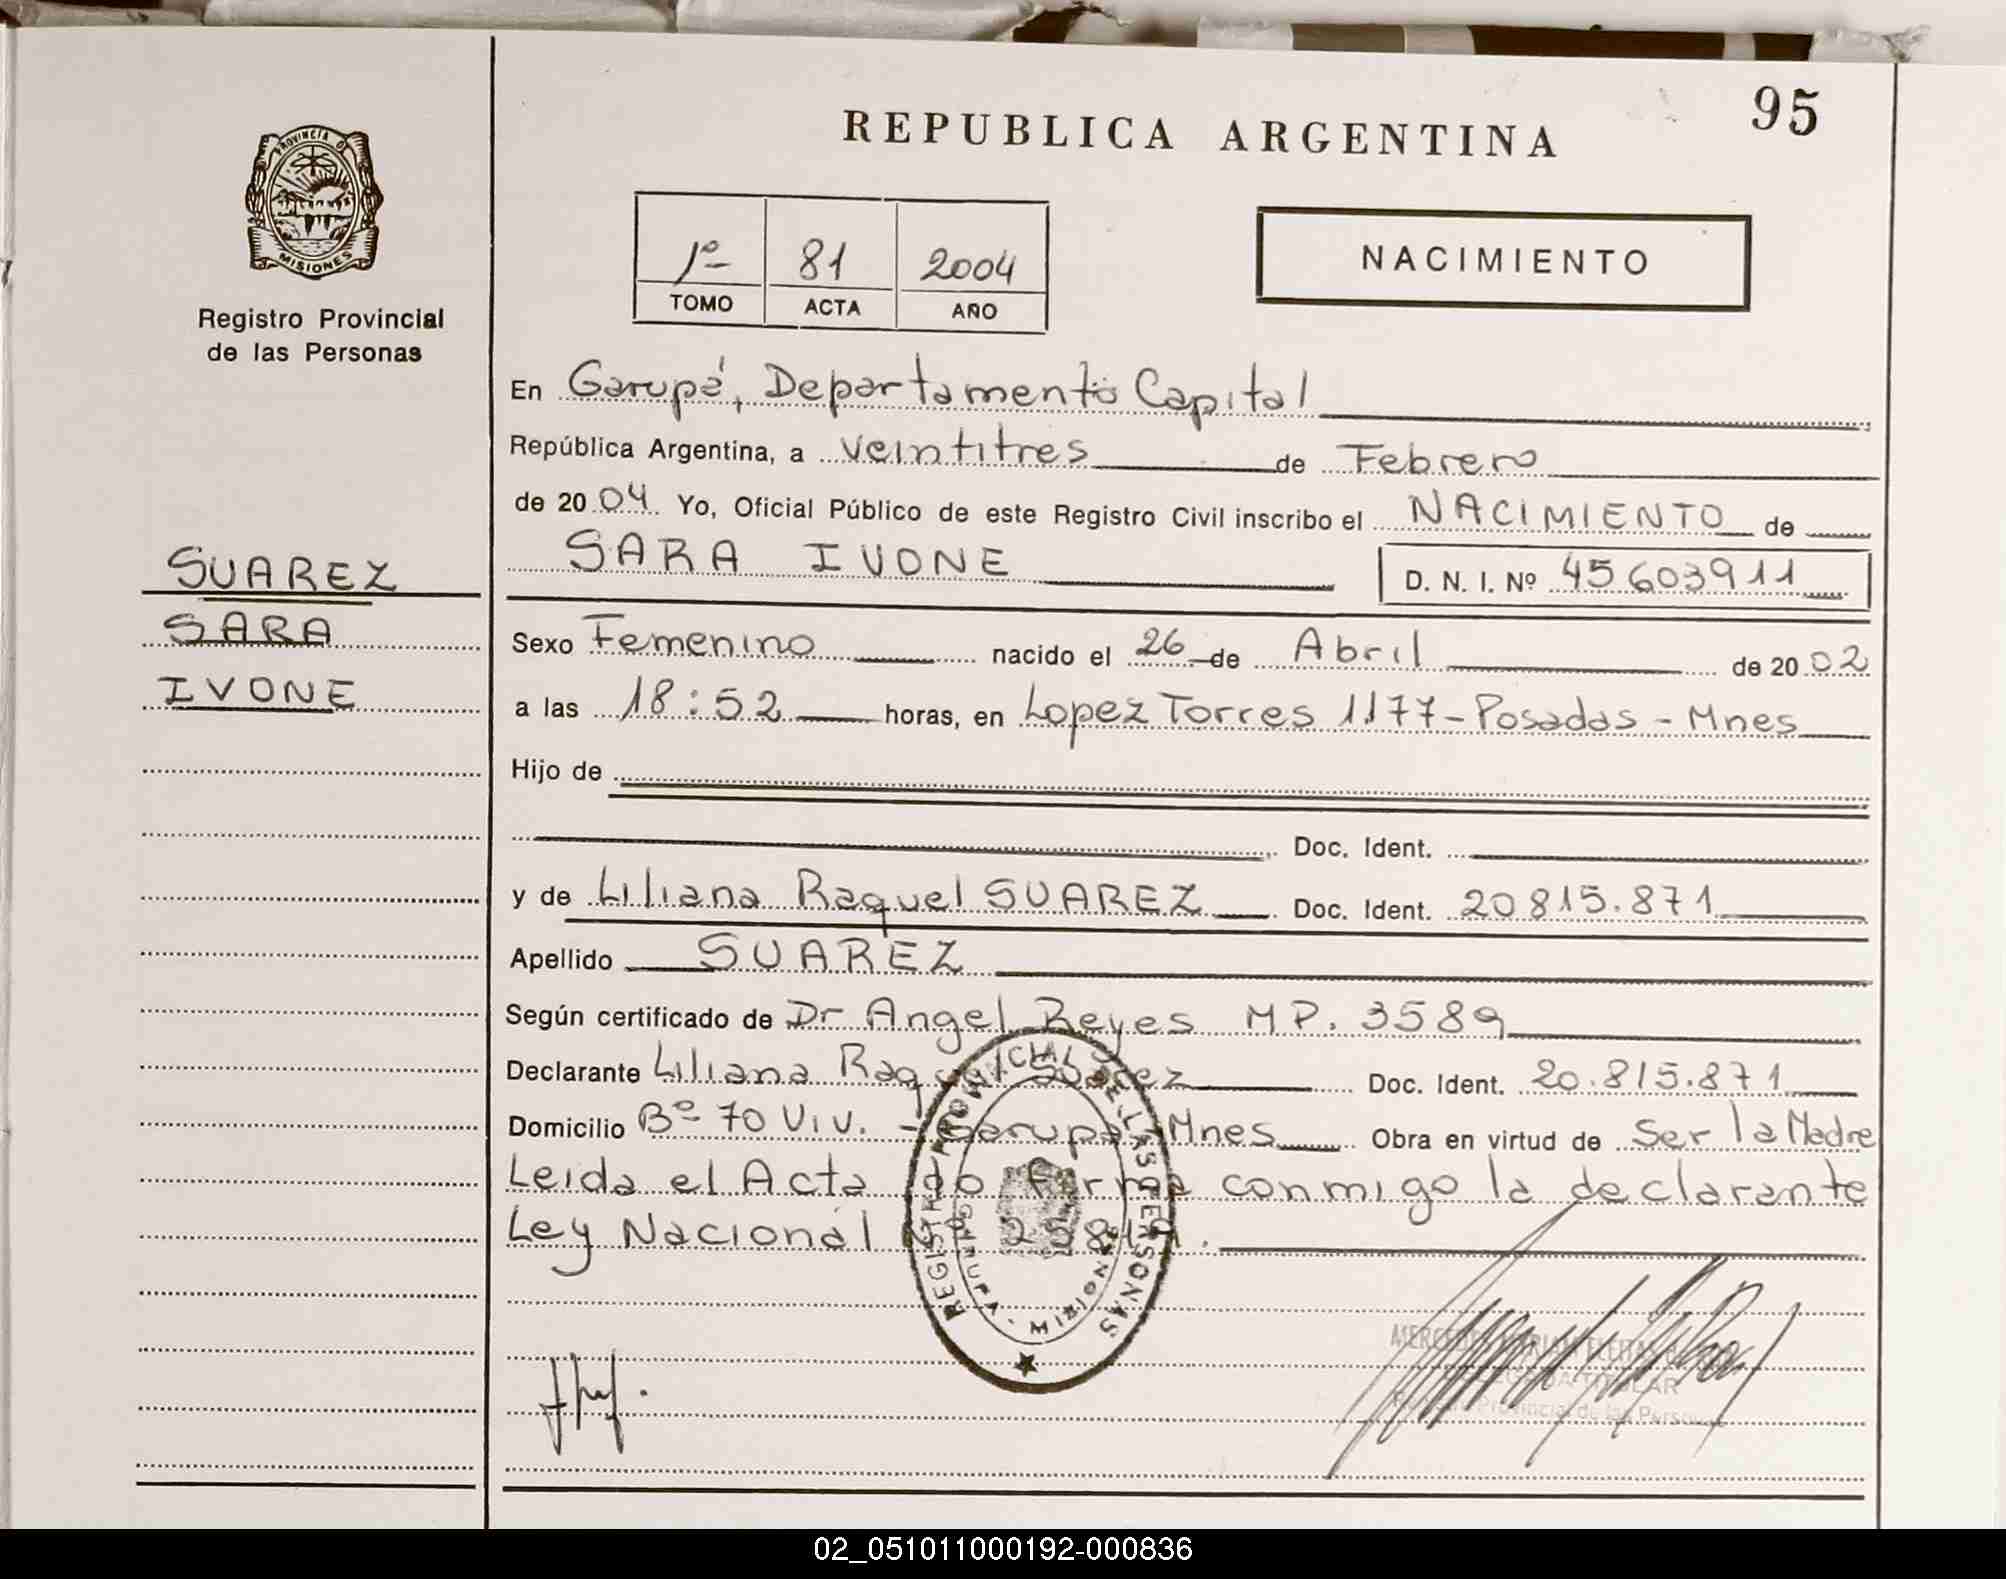 95
REPUBLICA ARGENTINA
PROVINCIA D
MISIONES
Registro Provincial
de las Personas
1º 81 2004
TOMO ACTA AÑO
NACIMIENTO
En Garupá, Departamento Capital
República Argentina, a veintitres de Febrero
de 2004 Yo, Oficial Público de este Registro Civil inscribo el NACIMIENTO de
SARA IVONE D. N. I. Nº 45603911
SUAREZ
SARA
IVONE
Sexo Femenino nacido el 26 de Abril de 2002
a las 18:52 horas, en Lopez Torres 1177-Posadas-Mnes
Hijo de
Doc. Ident.
y de Liliana Raquel SUAREZ Doc. Ident. 20815.871
Apellido SUAREZ
Según certificado de Dr Angel Reyes MP. 3589
Declarante Liliana Raquel Suarez Doc. Ident. 20.815.871
Domicilio Bº 70 Viv. - Garupá Mnes Obra en virtud de Ser la Madre
Leida el Acta firma conmigo la declarante
Ley Nacional
REGISTRO PROVINCIAL DE LAS PERSONAS
DELEGADA TITULAR
Registro Provincial de las Personas
02_051011000192-000836